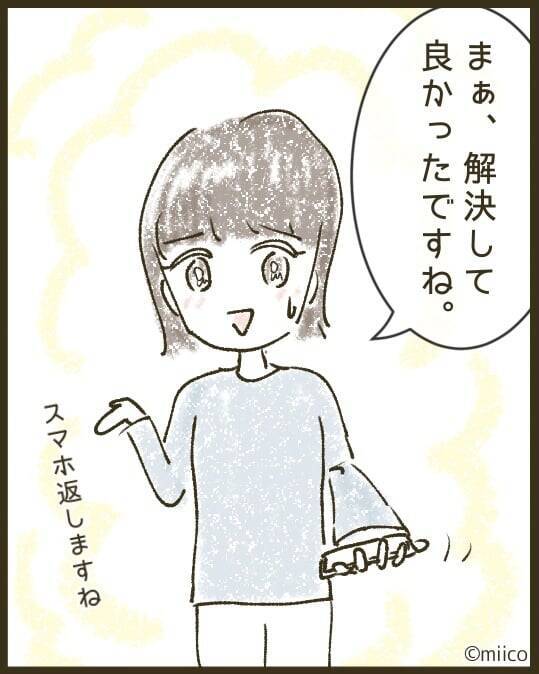 まぁ、解決して
良かったですね。
スマホ返しますね
©miico